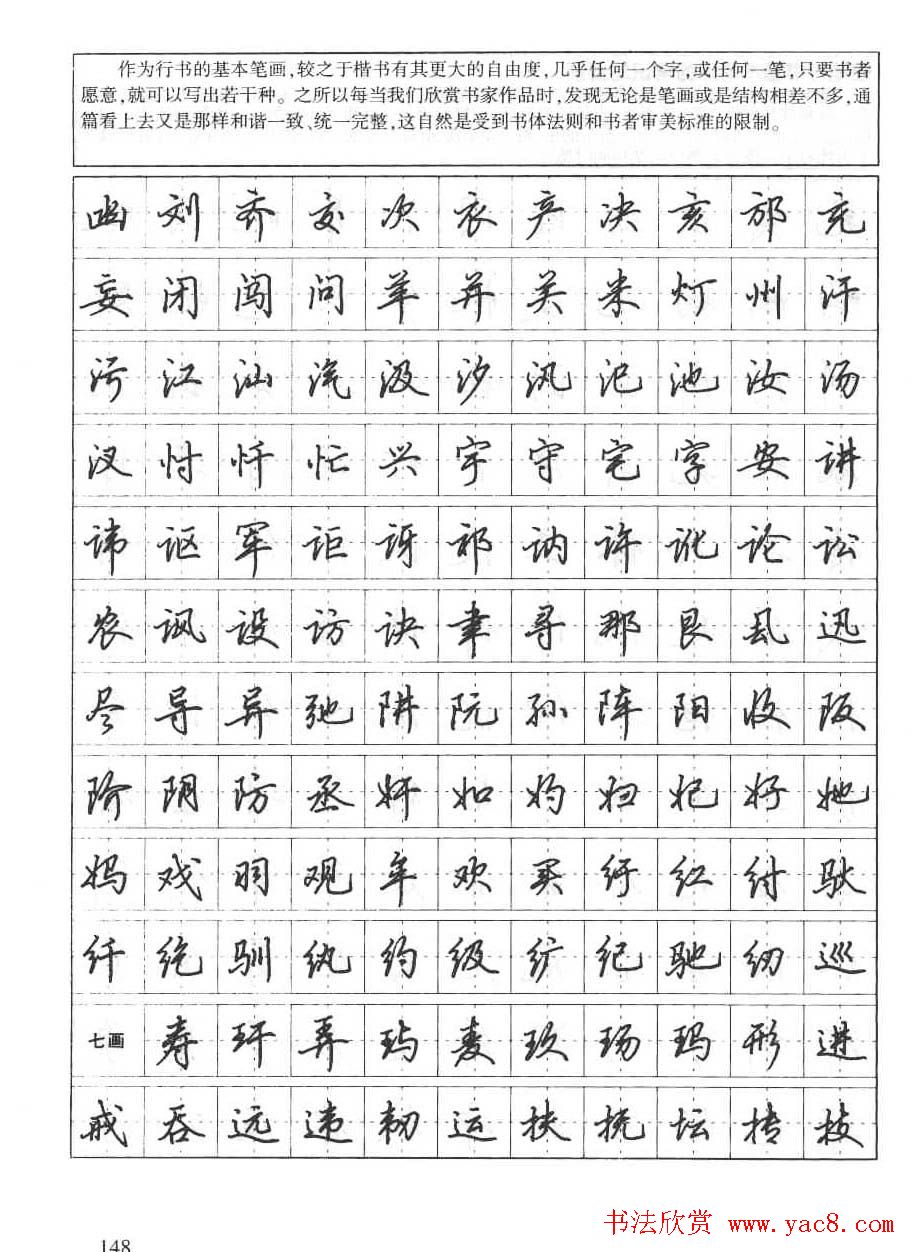 作为行书的基本笔画,较之于楷书有其更大的自由度,几乎任何一个字,或任何一笔,只要书者
愿意,就可以写出若干种。之所以每当我们欣赏书家作品时,发现无论是笔画或是结构相差不多,通
篇看上去又是那样和谐一致、统一完整,这自然是受到书体法则和书者审美标准的限制。
幽 刘 齐 交 次 衣 产 决 亥 邡 充
妄 闭 闯 问 羊 并 关 米 灯 州 汗
污 江 汕 汔 汲 汐 汛 汜 池 汝 汤
汊 忖 忏 忙 兴 宇 守 宅 字 安 讲
讳 讴 军 讵 讶 祁 讷 许 讹 论 讼
农 讽 设 访 诀 聿 寻 那 艮 厾 迅
尽 导 异 弛 阱 阮 孙 阵 阳 收 阪
阶 阴 防 丞 奸 如 妁 妇 妃 好 她
妈 戏 羽 观 牟 欢 买 纡 红 纣 驮
纤 纥 驯 纨 约 级 纩 纪 驰 纫 巡
七画 寿 玕 弄 玙 麦 玖 玚 玛 形 进
戒 吞 远 违 韧 运 扶 抚 坛 抟 技
148
书法欣赏 www.yac8.com